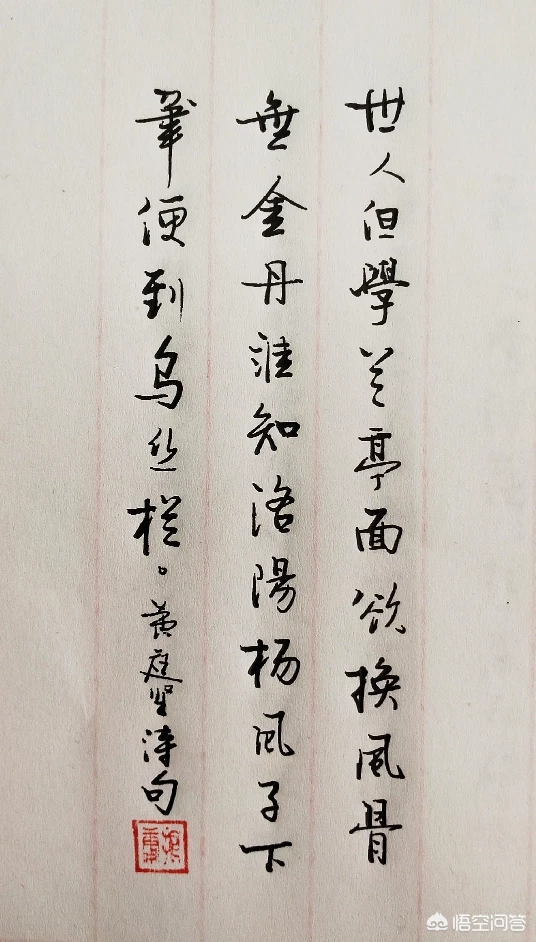 世人但學兰亭面欲换凨骨
無金丹誰知洛陽杨凨子下
筆便到乌丝栏。黄庭坚诗句
悟空问答